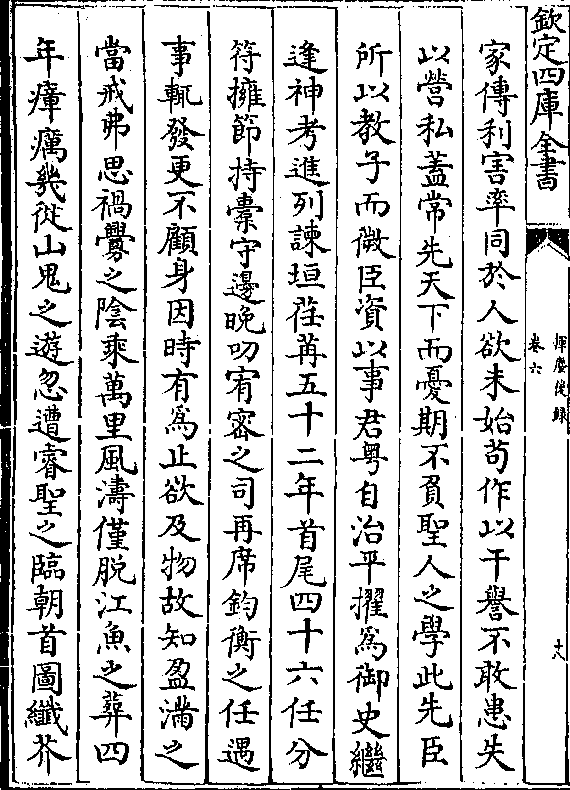 欽定四庫全書
揮麈後錄
卷六
十八
家傳利害率同於人欲未始苟作以干譽不敢患失
以營私蓋常先天下而憂期不負聖人之學此先臣
所以教子而微臣資以事君粤自治平擢為御史繼
逢神考進列諫垣荏苒五十二年首尾四十六任分
符擁節持橐守邊晚叨宥密之司再席鈞衡之任遇
事輒發更不顧身因時有為止欲及物故知盈滿之
當戒弗思禍釁之陰乘萬里風濤僅脫江魚之葬四
年瘴癘幾從山鬼之遊忽遭睿聖之臨朝首圖纖芥